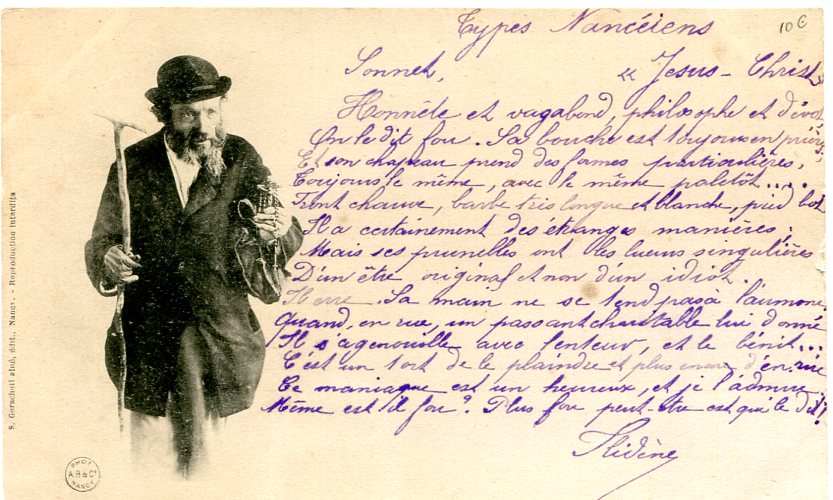 Types Nancéiens
10 €
Sonnet, « Jesus - Christ »
Honnête et vagabond, philosophe et dévot
On le dit fou. Sa bouche est toujours en prière,
Et son chapeau prend des formes particulières,
Toujours le même, avec le même paletôt....
Front chauve, barbe très longue et blanche, pied bot
Il a certainement des étranges manières:
Mais ses prunelles ont les lueurs singulières
D'un être original et non d'un idiot.
Sa main ne se tend pas à l'aumône
Quand, en rue, un passant charitable lui donne
Il s'agenouille avec lenteur, et le bénit...
C'est un tort de le plaindre et plus encor d'en rire
Ce maniaque est un heureux, et je l'admire
Même est-il fou? Plus fou peut-être est qui le dit!
S. Gerschell aîné, édit., Nancy. - Reproduction interdite
PHOT.
A.B & Cie
NANCY